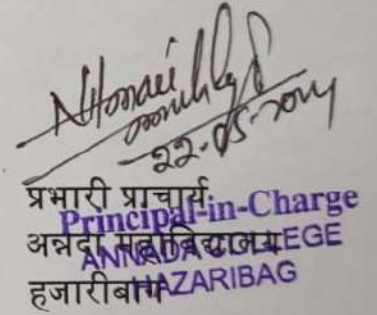 22-05-2024
प्रभारी प्राचार्य
Principal-in-Charge
अन्नदा महाविद्यालय
ANNADA COLLEGE
हजारीबाग
HAZARIBAG